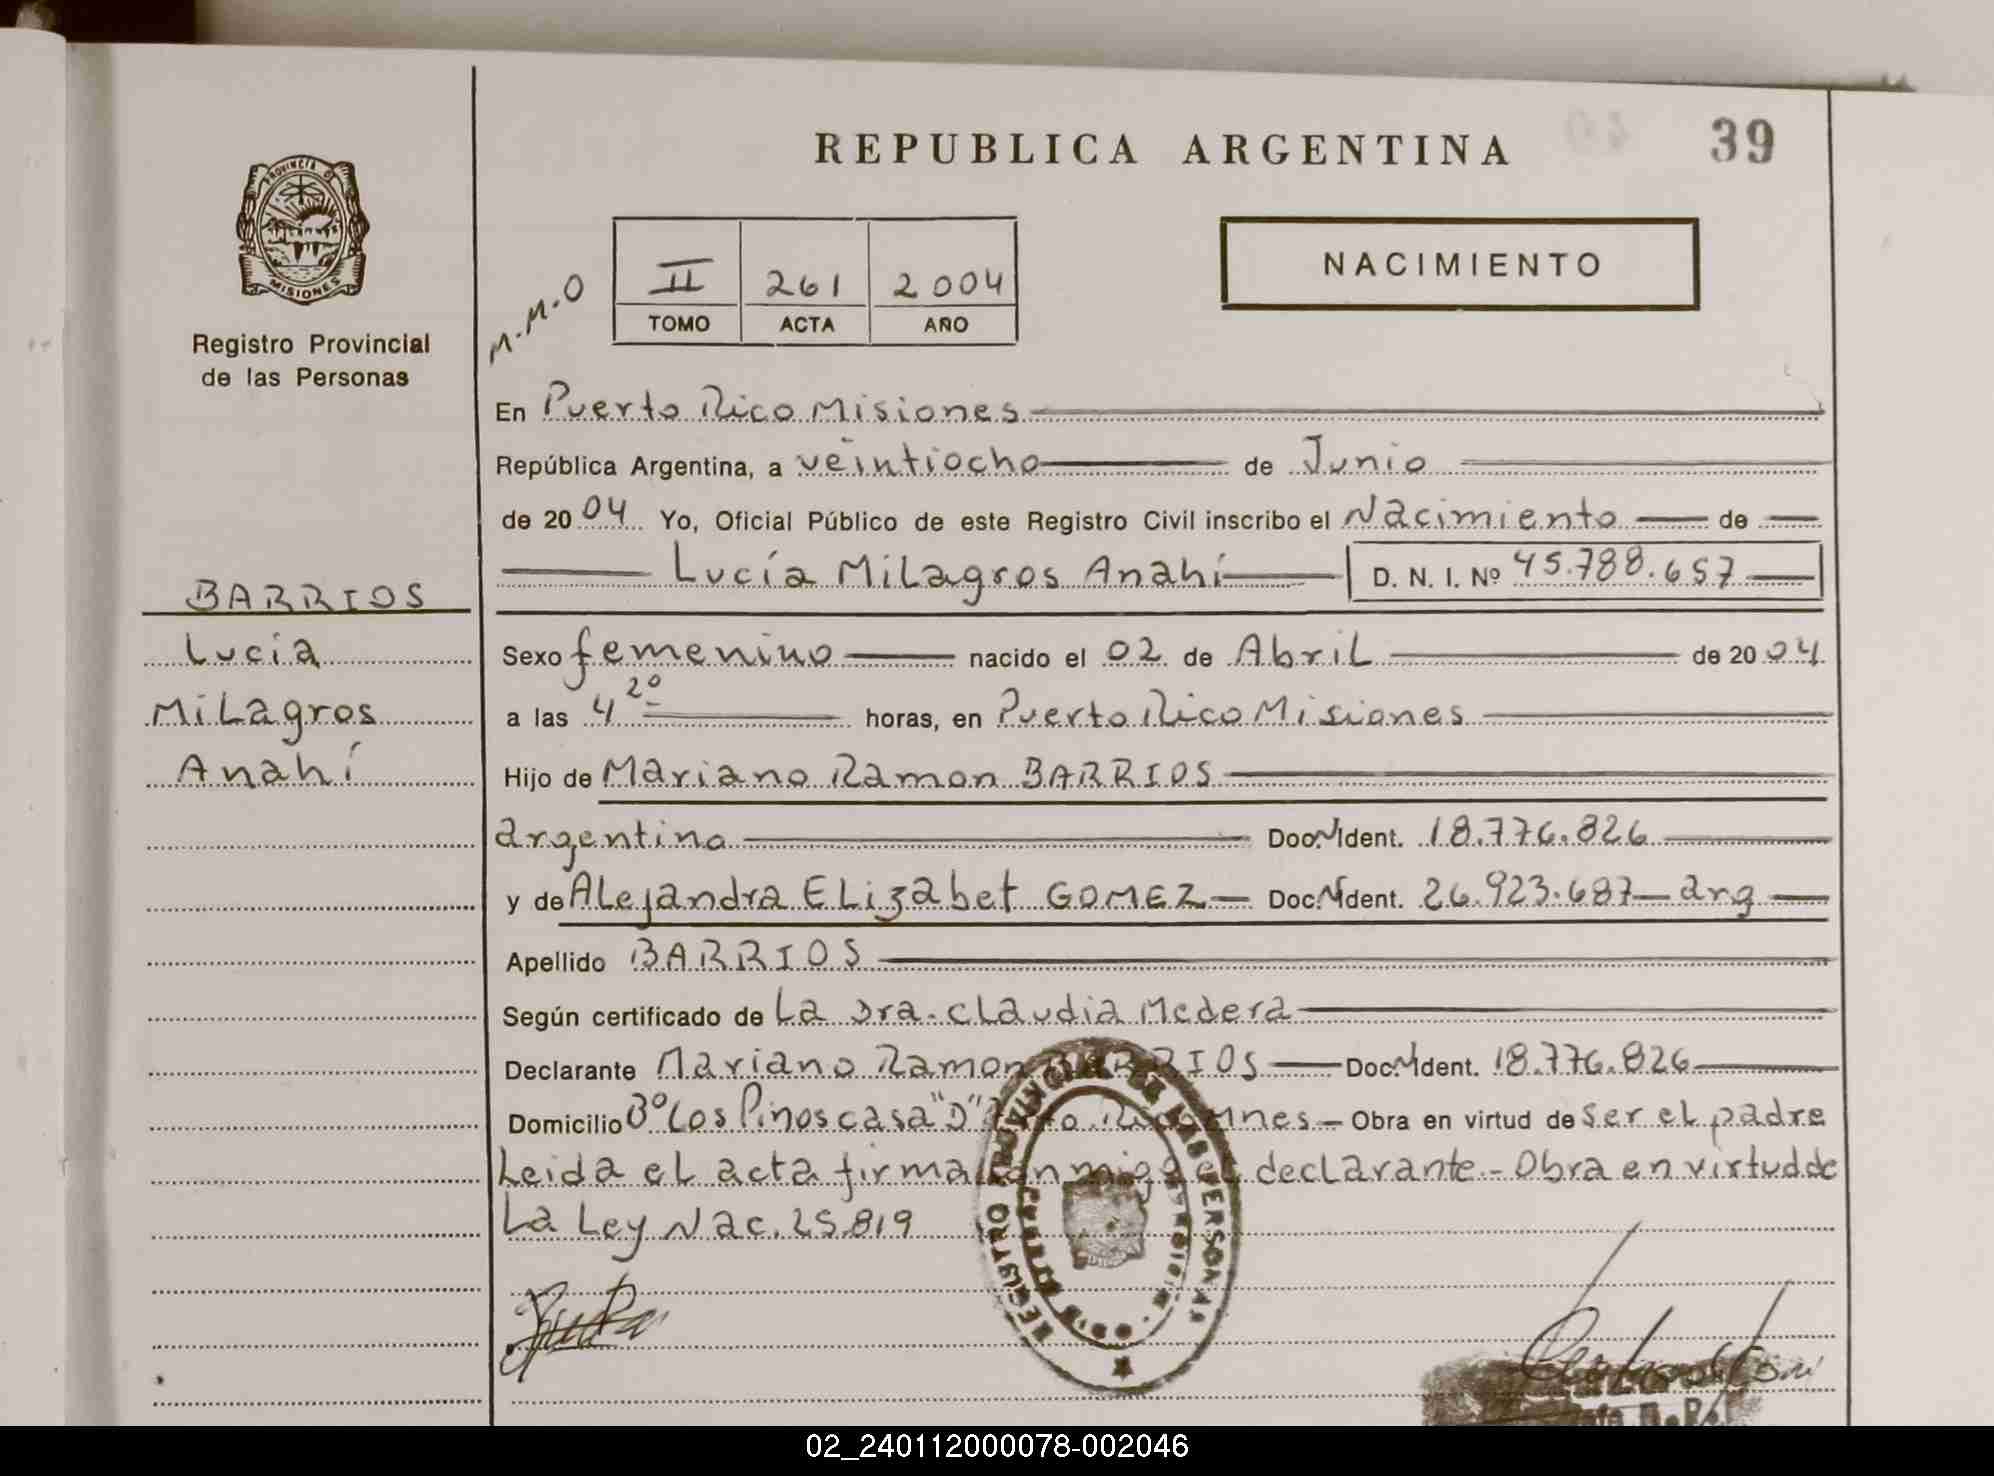 REPUBLICA ARGENTINA
39
PROVINCIA DE
MISIONES
Registro Provincial
de las Personas
M.M.O
II 261 2004
TOMO ACTA AÑO
NACIMIENTO
En Puerto Rico Misiones
República Argentina, a veintiocho de Junio
de 2004 Yo, Oficial Público de este Registro Civil inscribo el Nacimiento de
Lucía Milagros Anahí D. N. I. Nº 45.788.657
BARRIOS
Lucía
Milagros
Anahí
Sexo femenino nacido el 02 de Abril de 2004
a las 4 20 horas, en Puerto Rico Misiones
Hijo de Mariano Ramon BARRIOS
argentino Doc. N Ident. 18.776.826
y de Alejandra Elizabet GOMEZ Doc. N Ident. 26.923.687 arg
Apellido BARRIOS
Según certificado de La Dra. Claudia Medera
Declarante Mariano Ramon BARRIOS Doc. N Ident. 18.776.826
Domicilio Bº Los Pinos casa "D" Pto. Rico Mnes Obra en virtud de ser el padre
Leida el acta firma conmigo el declarante - Obra en virtud de
La Ley Nac. 25.819
REGISTRO PROVINCIAL DE LAS PERSONAS
02_240112000078-002046